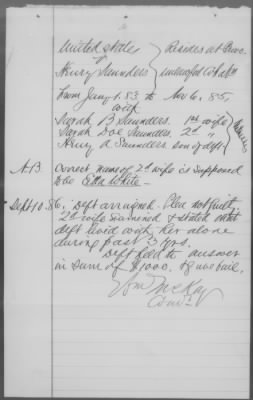 United States } Resides at Provo.
vs
Henry Saunders } unlawful cohab.
From Jany 1. 83 to Nov 6, 85,
with
Sarah B Saunders. 1st wife
Sarah Doe Saunders. 2d "
Henry A Saunders son of deft.
N.B. Correct name of 2d wife is supposed
to be Etta White -
Sept 10. 86. Deft arraigned. Plea not guilty
2d wife examined & stated that
deft lived with her alone
during past 3 yrs.
Deft held to answer
in sum of $1000. & gave bail.
Wm McKay
Comr